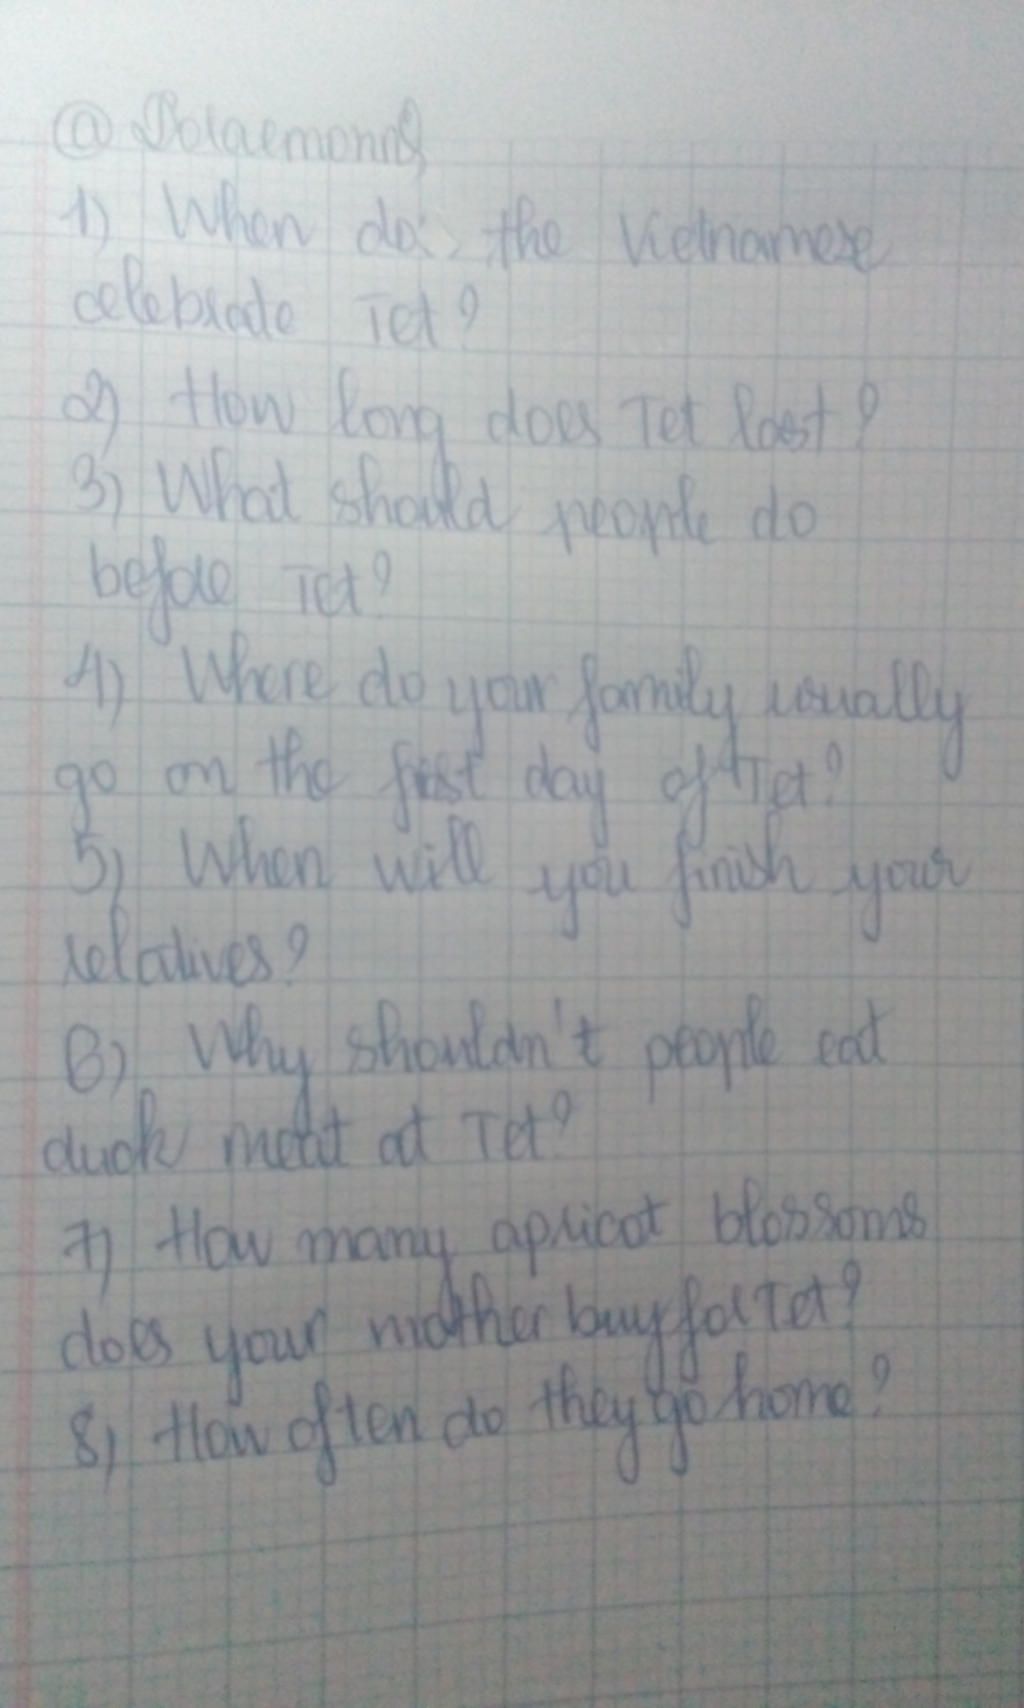 @ Doraemon
1) When do the Vietnamese
celebrate Tet?
2) How long does Tet last?
3) What should people do
before Tet?
4) Where do your family usually
go on the first day of Tet?
5) When will you finish your
relatives?
6) Why shouldn't people eat
duck meat at Tet?
7) How many apricot blossoms
does your mother buy for Tet?
8) How often do they go home?